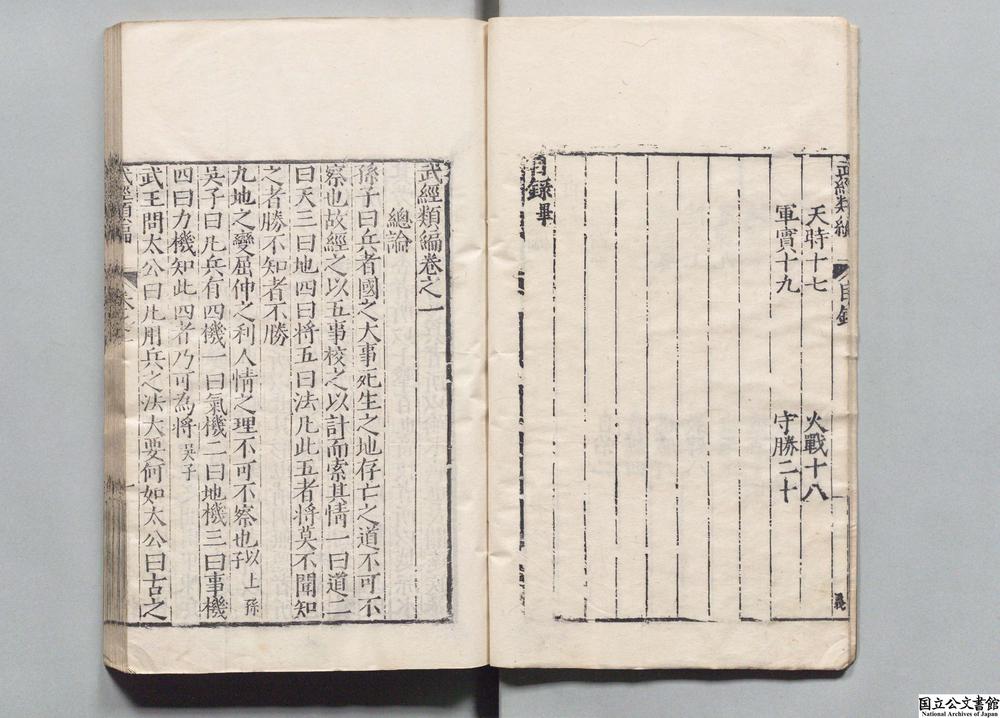 武經類編
目錄
天時十七　火戰十八
軍實十九　守勝二十
目錄畢
武經類編卷之一
總論
孫子曰兵者國之大事死生之地存亡之道不可不
察也故經之以五事校之以計而索其情一曰道二
曰天三曰地四曰将五曰法凡此五者将莫不聞知
之者勝不知者不勝
九地之變屈伸之利人情之理不可不察也以上孫子
吳子曰凡兵有四機一曰氣機二曰地機三曰事機
四曰力機知此四者乃可為将吳子
武王問太公曰凡用兵之法大要何如太公曰古之
武經類編
卷之一
一
国立公文書館
National Archives of Japan